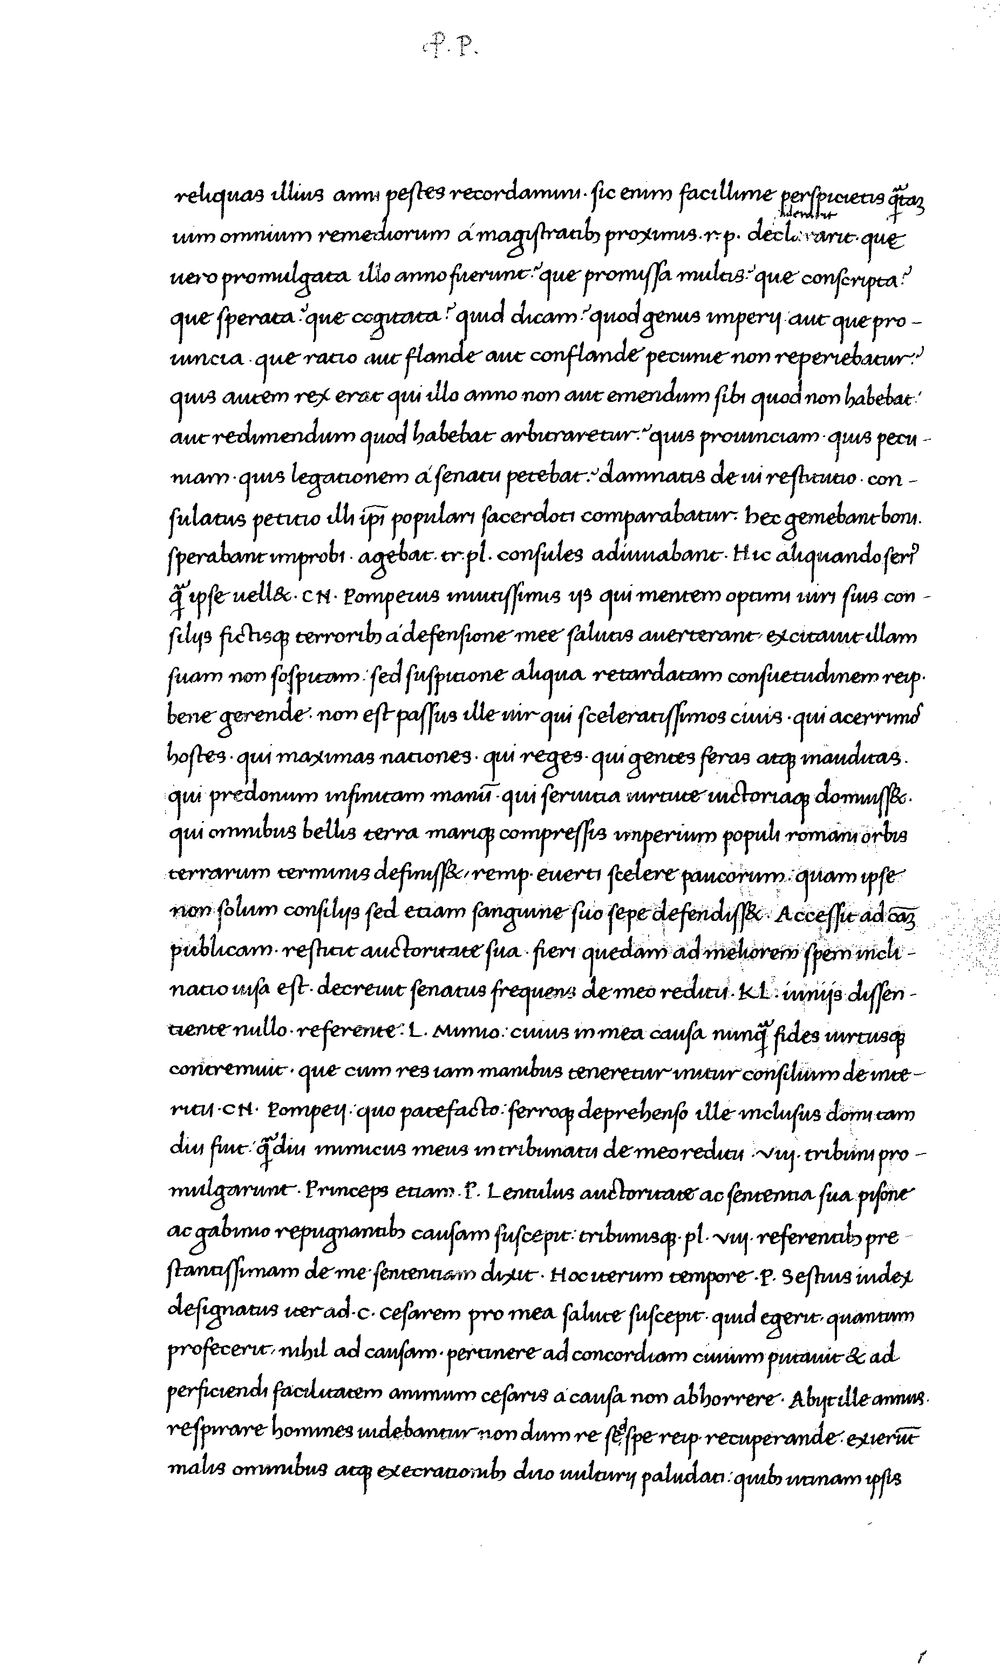 P. P.
reliquas illius anni pestes recordamini. sic enim facillime perspicietis q̃taʒ
uim omnium remediorum a magistratibꝫ proximis. r. p. declararit. que
vero promulgata illo anno fuerunt? que promissa multis? que conscripta?
que sperata? que cogitata? quid dicam? quod genus imperij aut que pro-
uincia. que ratio aut flande aut conflande pecunie non reperiebatur?
quis autem rex erat qui illo anno non aut emendum sibi quod non habebat:
aut redimendum quod habebat arbitraretur? quis prouinciam. quis pecu-
niam. quis legationem a senatu petebat? damnatis de ui restitutio. con-
sulatus petitio illi ip̃i populari sacerdoti comparabatur. hec gemebant boni.
sperabant improbi. agebat. tr. pl. consules adiuuabant. Hic aliquando seriꝰ
q̃ ipse uell&. CN. Pompeius inuitissimis ijs qui mentem optimi uiri suis con-
silijs fictisqꝫ terroribꝫ a defensione mee salutis auerterant, excitauit illam
suam non sospitam: sed suspitione aliqua retardatam consuetudinem reip.
bene gerende. non est passus ille uir qui sceleratissimos ciuis. qui acerrimos
hostes. qui maximas nationes. qui reges. qui gentes feras atqꝫ inauditas.
qui predonum infinitam manū. qui seruitia uirtute uictoriaqꝫ domuiss&.
qui omnibus bellis terra mariqꝫ compressis imperium populi romani orbis
terrarum terminis definiss&, remp. euerti scelere paucorum: quam ipse
non solum consilijs sed etiam sanguine suo sepe defendiss&. Accessit ad cāʒ
publicam. restitit auctoritate sua. fieri quedam ad meliorem spem incli-
natio uisa est. decreuit senatus frequens de meo reditu. KL. iunijs dissen-
tiente nullo. referente: L. Minio: cuius in mea causa nunq̃ fides uirtusqꝫ
contremuit. que cum res iam manibus teneretur initur consilium de inte-
ritu. CN. Pompeij: quo patefacto: ferroqꝫ deprehenso ille inclusus domi tam
diu fuit: q̃diu inimicus meus in tribunatu de meo reditu. viij. tribuni pro-
mulgarunt. Princeps etiam. P. Lentulus auctoritate ac sententia sua pisone
ac gabinio repugnantibꝫ causam suscepit: tribunisqꝫ. pl. viij. referentibꝫ pre
stantissimam de me sententiam dixit. Hoc iterum tempore. P. Sestius iudex
designatus iter ad. C. cesarem pro mea salute suscepit. quid egerit, quantum
profecerit, nihil ad causam. pertinere ad concordiam ciuium putauit & ad
perficiendi facilitatem animum cesaris a causa non abhorrere. Abijt ille annus.
respirare homines uidebantur non dum re se᷑ spe reip recuperande. exierūt
malis ominibus atqꝫ execrationibꝫ duo uulturij paludati: quibꝫ utinam ipsis